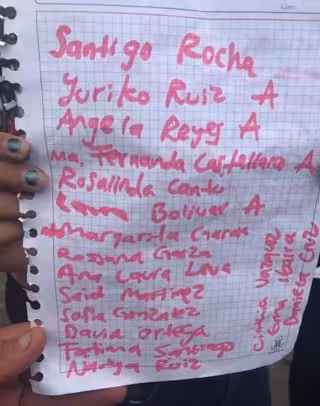 Santigo Rocha
Yuriko Ruiz A
Angela Reyes A
Ma. Fernanda Castellano A
Rosalinda Cantu
Bolivar A
Margarita Garcia
Rossana Garza
Ana Laura Leva
Said Martinez
Sofia Gonzalez
David Ortega
Fatima Santiago
Ruiz
Cinthia Vazquez
Ibarra
Daniela Cruz